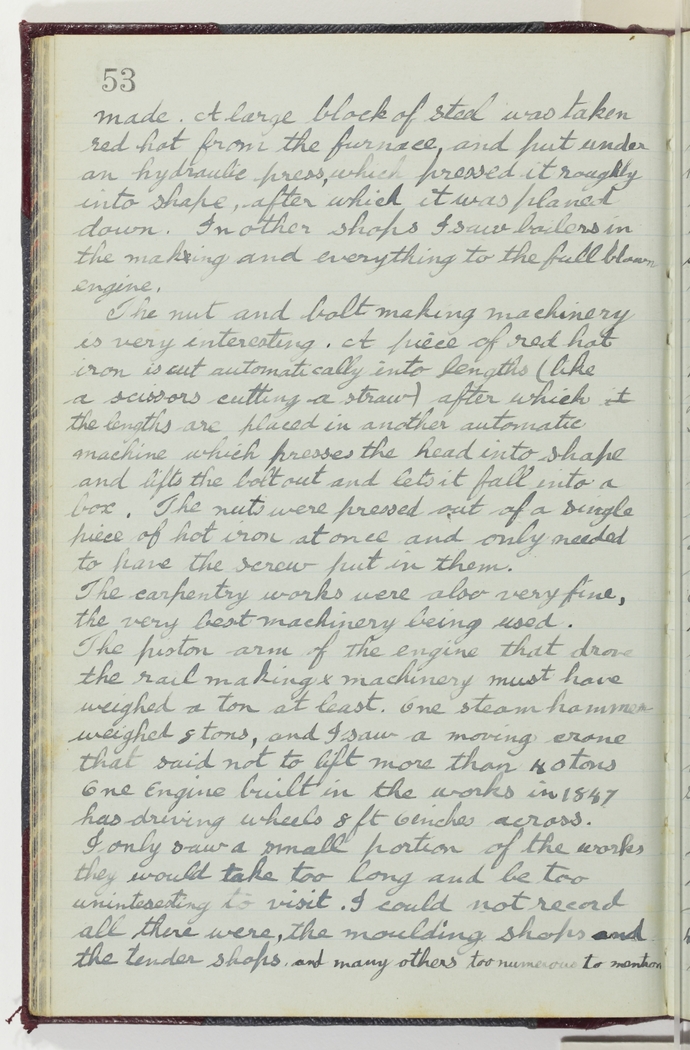 53
made. A large block of steel was taken
red hot from the furnace, and put under
an hydraulic press, which pressed it roughly
into shape, after which it was planed
down. In other shops I saw boilers in
the making and everything to the full blown
engine.
The nut and bolt making machinery
is very interesting. A piece of red hot
iron is cut automatically into lengths (like
a scissors cutting a straw) after which it
the lengths are placed in another automatic
machine which presses the head into shape
and lifts the bolt out and lets it fall into a
box. The nuts were pressed out of a single
piece of hot iron at once and only needed
to have the screw put in them.
The carpentry works were also very fine,
the very best machinery being used.
The piston arm of the engine that drove
the rail making x machinery must have
weighed a ton at least. One steam hammer
weighed 8 tons, and I saw a moving crane
that said not to lift more than 40 tons
One Engine built in the works in 1847
has driving wheels 8 ft 6 inches across.
I only saw a small portion of the works
they would take too long and be too
uninteresting to visit. I could not record
all there were, the moulding shops and
the tender shops. and many others too numerous to mention